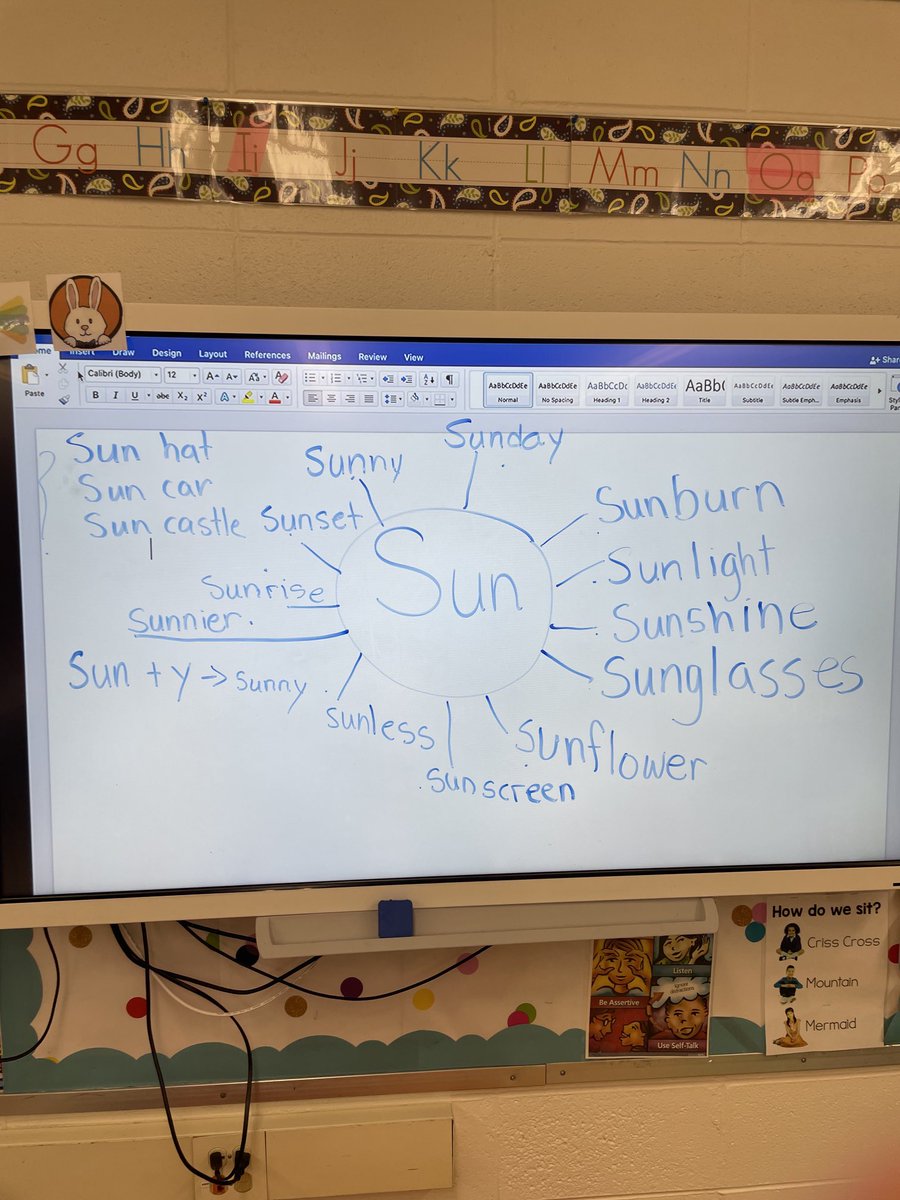 Gg Hh Ii Jj Kk Ll Mm Nn Oo Pp
Insert Draw Design Layout References Mailings Review View
Paste
Calibri (Body) 12
B I U abc X₂ X²
AaBbCcDdEe AaBbCcDdEe AaBbCcDc AaBbCcDdEe AaBb( AaBbCcDdEe AaBbCcDdEe AaBbCcDdEe
Normal No Spacing Heading 1 Heading 2 Title Subtitle Subtle Emph... Emphasis
Sun hat
Sun car
Sun castle
Sunny
Sunday
Sunset
Sunrise
Sunnier.
Sun + y -> Sunny
Sun
Sunburn
Sunlight
Sunshine
Sunglasses
Sunflower
Sunscreen
Sunless
Be Assertive
Listen
Use Self-Talk
How do we sit?
Criss Cross
Mountain
Mermaid